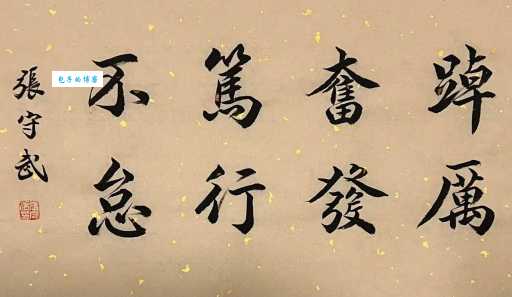 踔厲
奮發
篤行
不怠
張守武
包子的博客